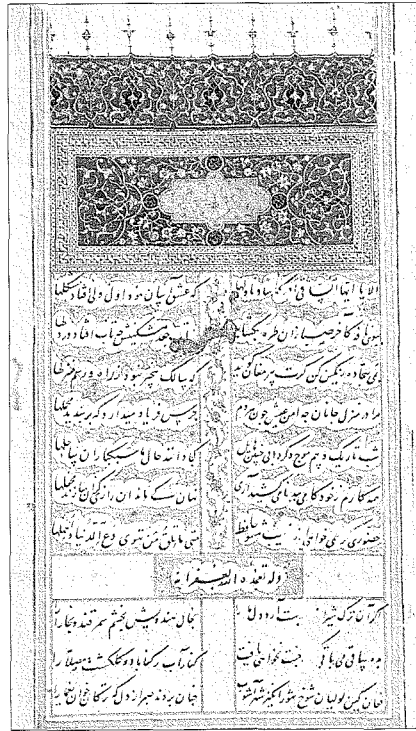 الا یا ایها الساقی ادر کاسا و ناولها که عشق آسان نمود اول ولی افتاد مشکلها
ببوی نافه کاخر صبا زان طره بگشاید جعد مشکینش افتاد در دلها
بمی سجاده رنگین کن گرت پیر مغان گوید که سالک بیخبر نبود ز راه و رسم منزلها
مرا در منزل جانان چه امن عیش چون هر دم جرس فریاد میدارد که بربندید محملها
شب تاریک و بیم موج و گردابی چنین هایل کجا دانند حال ما سبکباران ساحلها
همه کارم ز خود کامی به بدنامی کشید آری نهان کی ماند آن رازی کزو سازند محفلها
حضوری گر همی خواهی ازو غایب مشو حافظ متی ما تلق من تهوی دع الدنیا و اهملها
وله تغمده الله بغفرانه
اگر آن ترک شیرازی بدست آرد دل ما را بخال هندویش بخشم سمرقند و بخارا را
بده ساقی می باقی که در جنت نخواهی یافت کنار آب رکناباد و گلگشت مصلا را
فغان کین لولیان شوخ شیرین کار شهر آشوب چنان بردند صبر از دل که ترکان خوان یغما را